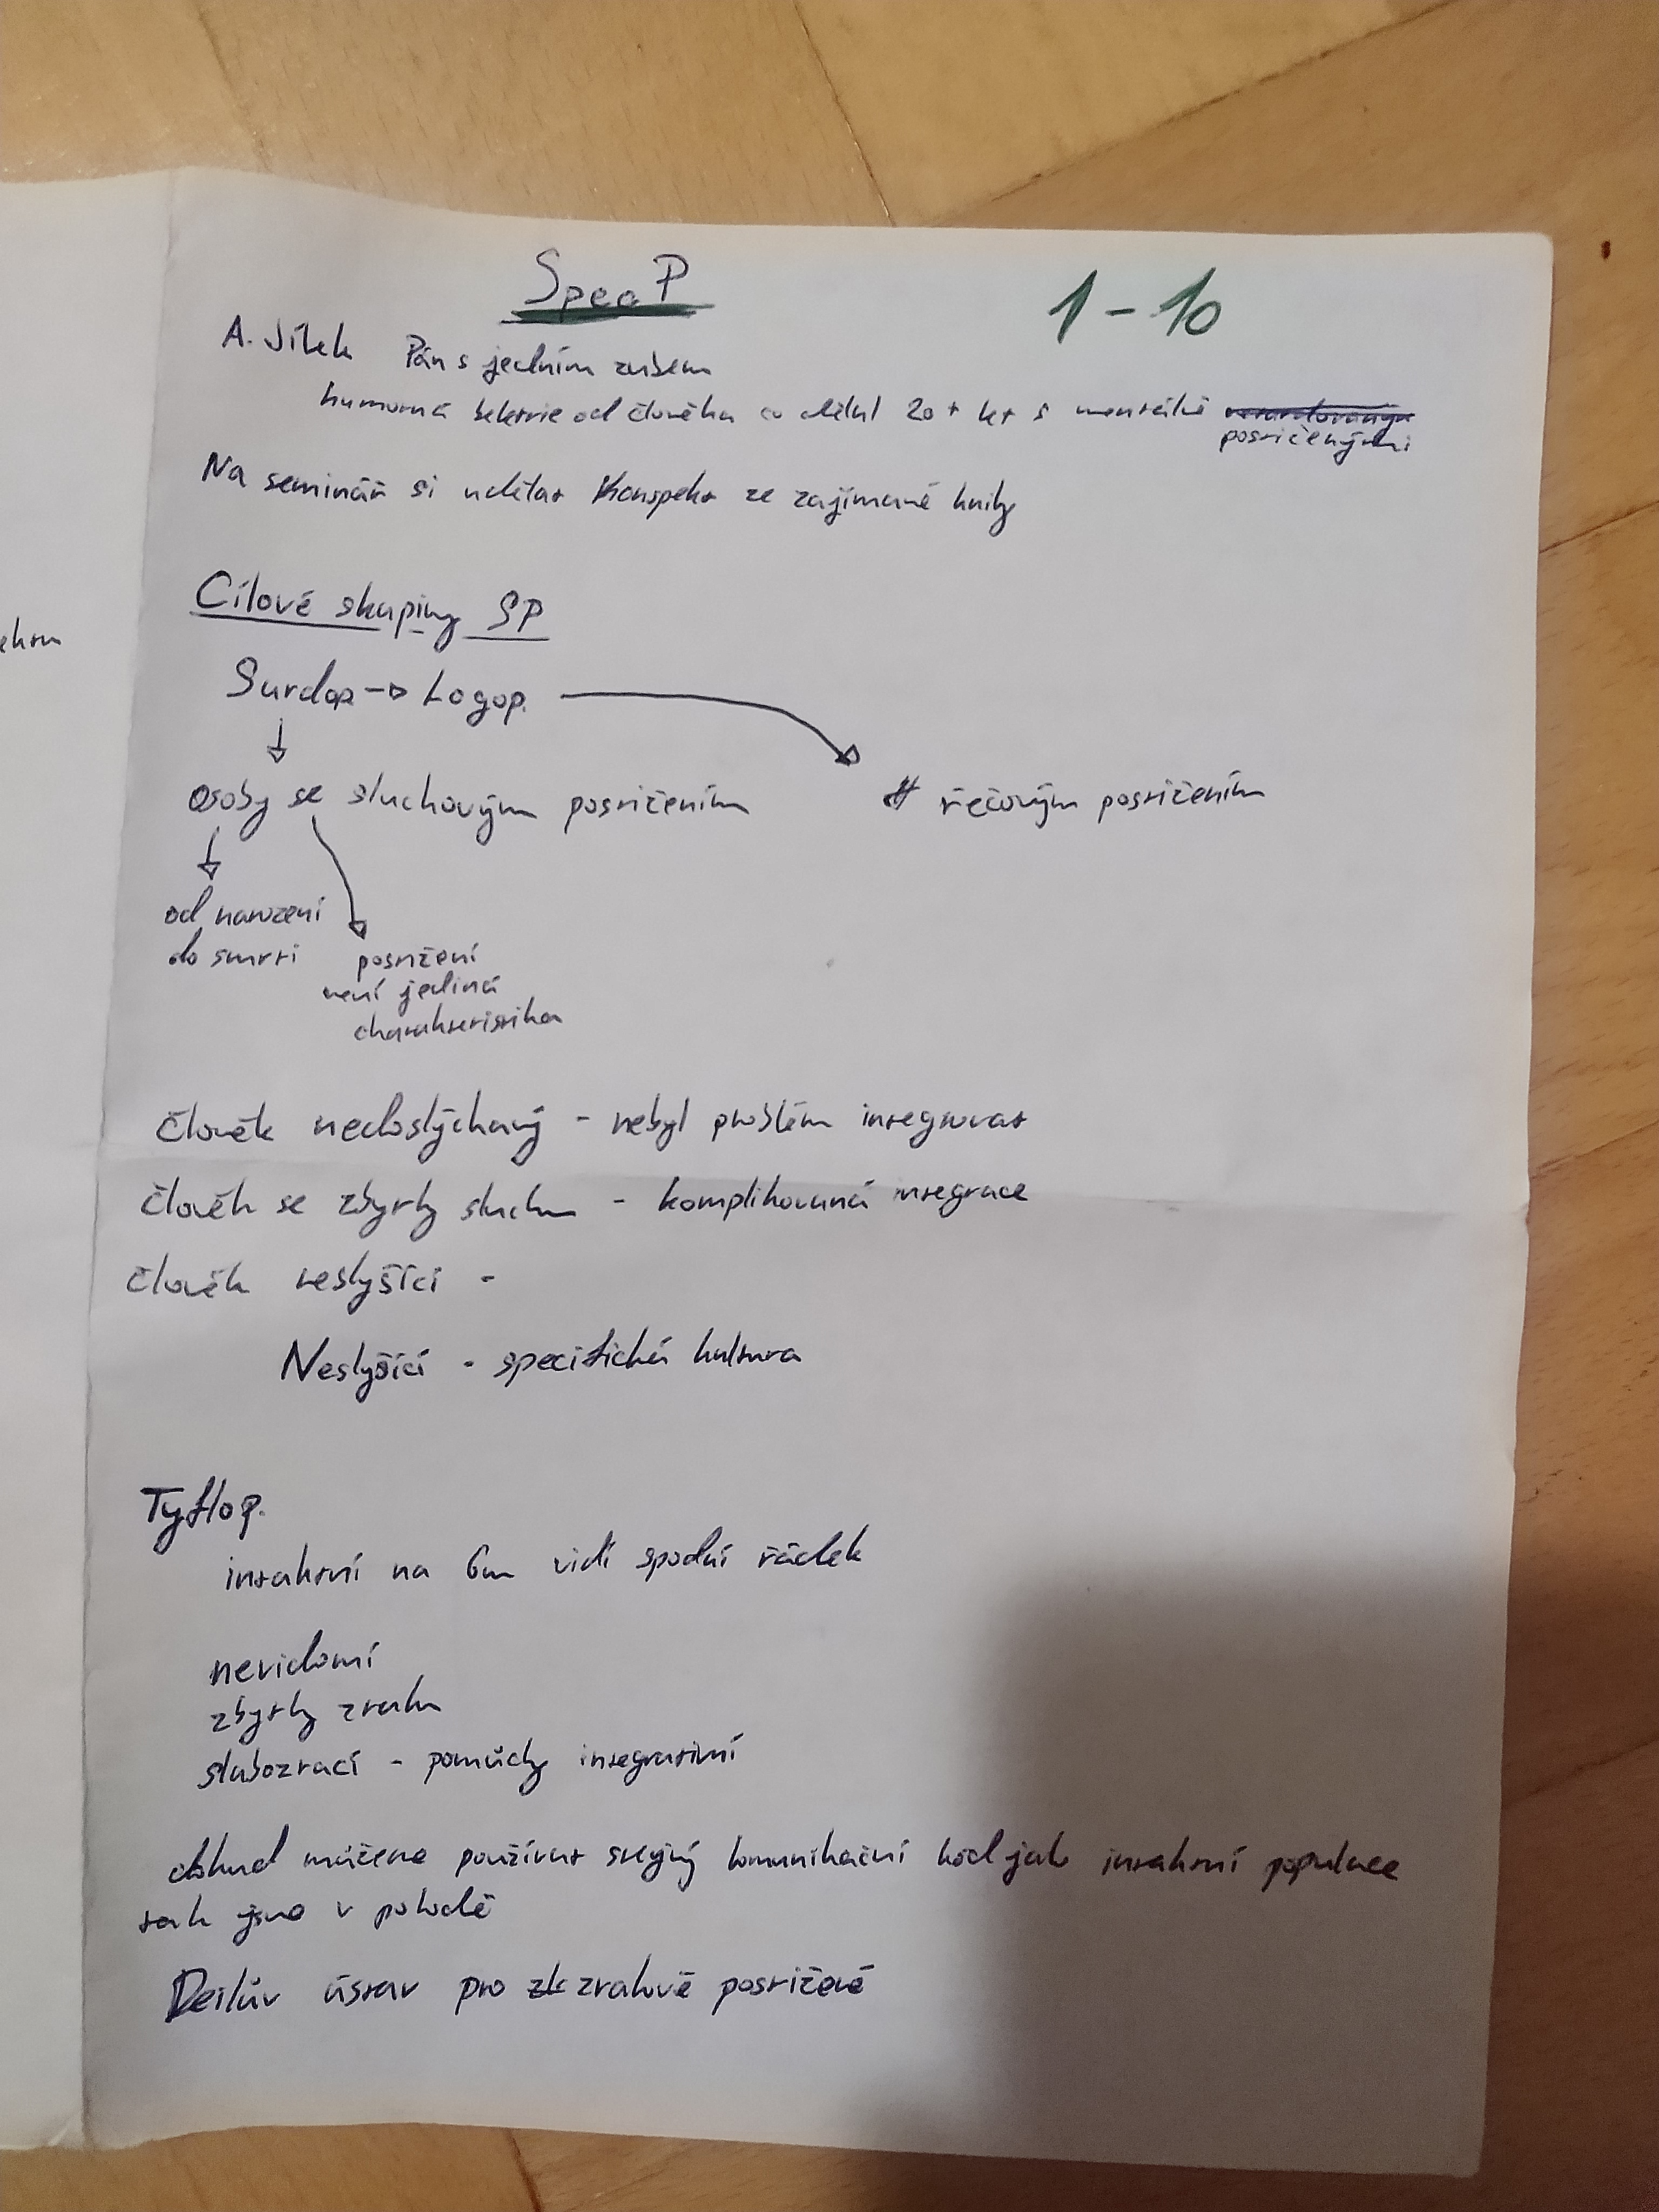 SpecP
1-10
A. Jílek Pán s jedním zubem
humorná beletrie od člověka co dělal 20+ let s mentálně
postiženými
Na seminář si udělat konspekt ze zajímavé knihy
Cílové skupiny SP
Surdop → Logop.
osoby se sluchovým postižením
řečovým postižením
od narození
do smrti
postižení
není jediná
charakteristika
člověk nedoslýchavý - nebyl problém integrovat
člověk se zbytky sluchu - komplikovaná integrace
člověk neslyšící -
Neslyšící - specifická kultura
Tyflop.
intaktní na 6m vidí spodní řádek
nevidomí
zbytky zraku
slabozrací - pomůcky integrativní
dokud můžeme používat stejný komunikační kód jako intaktní populace
tak jsme v pohodě
Deilův ústav pro zrakově postižené